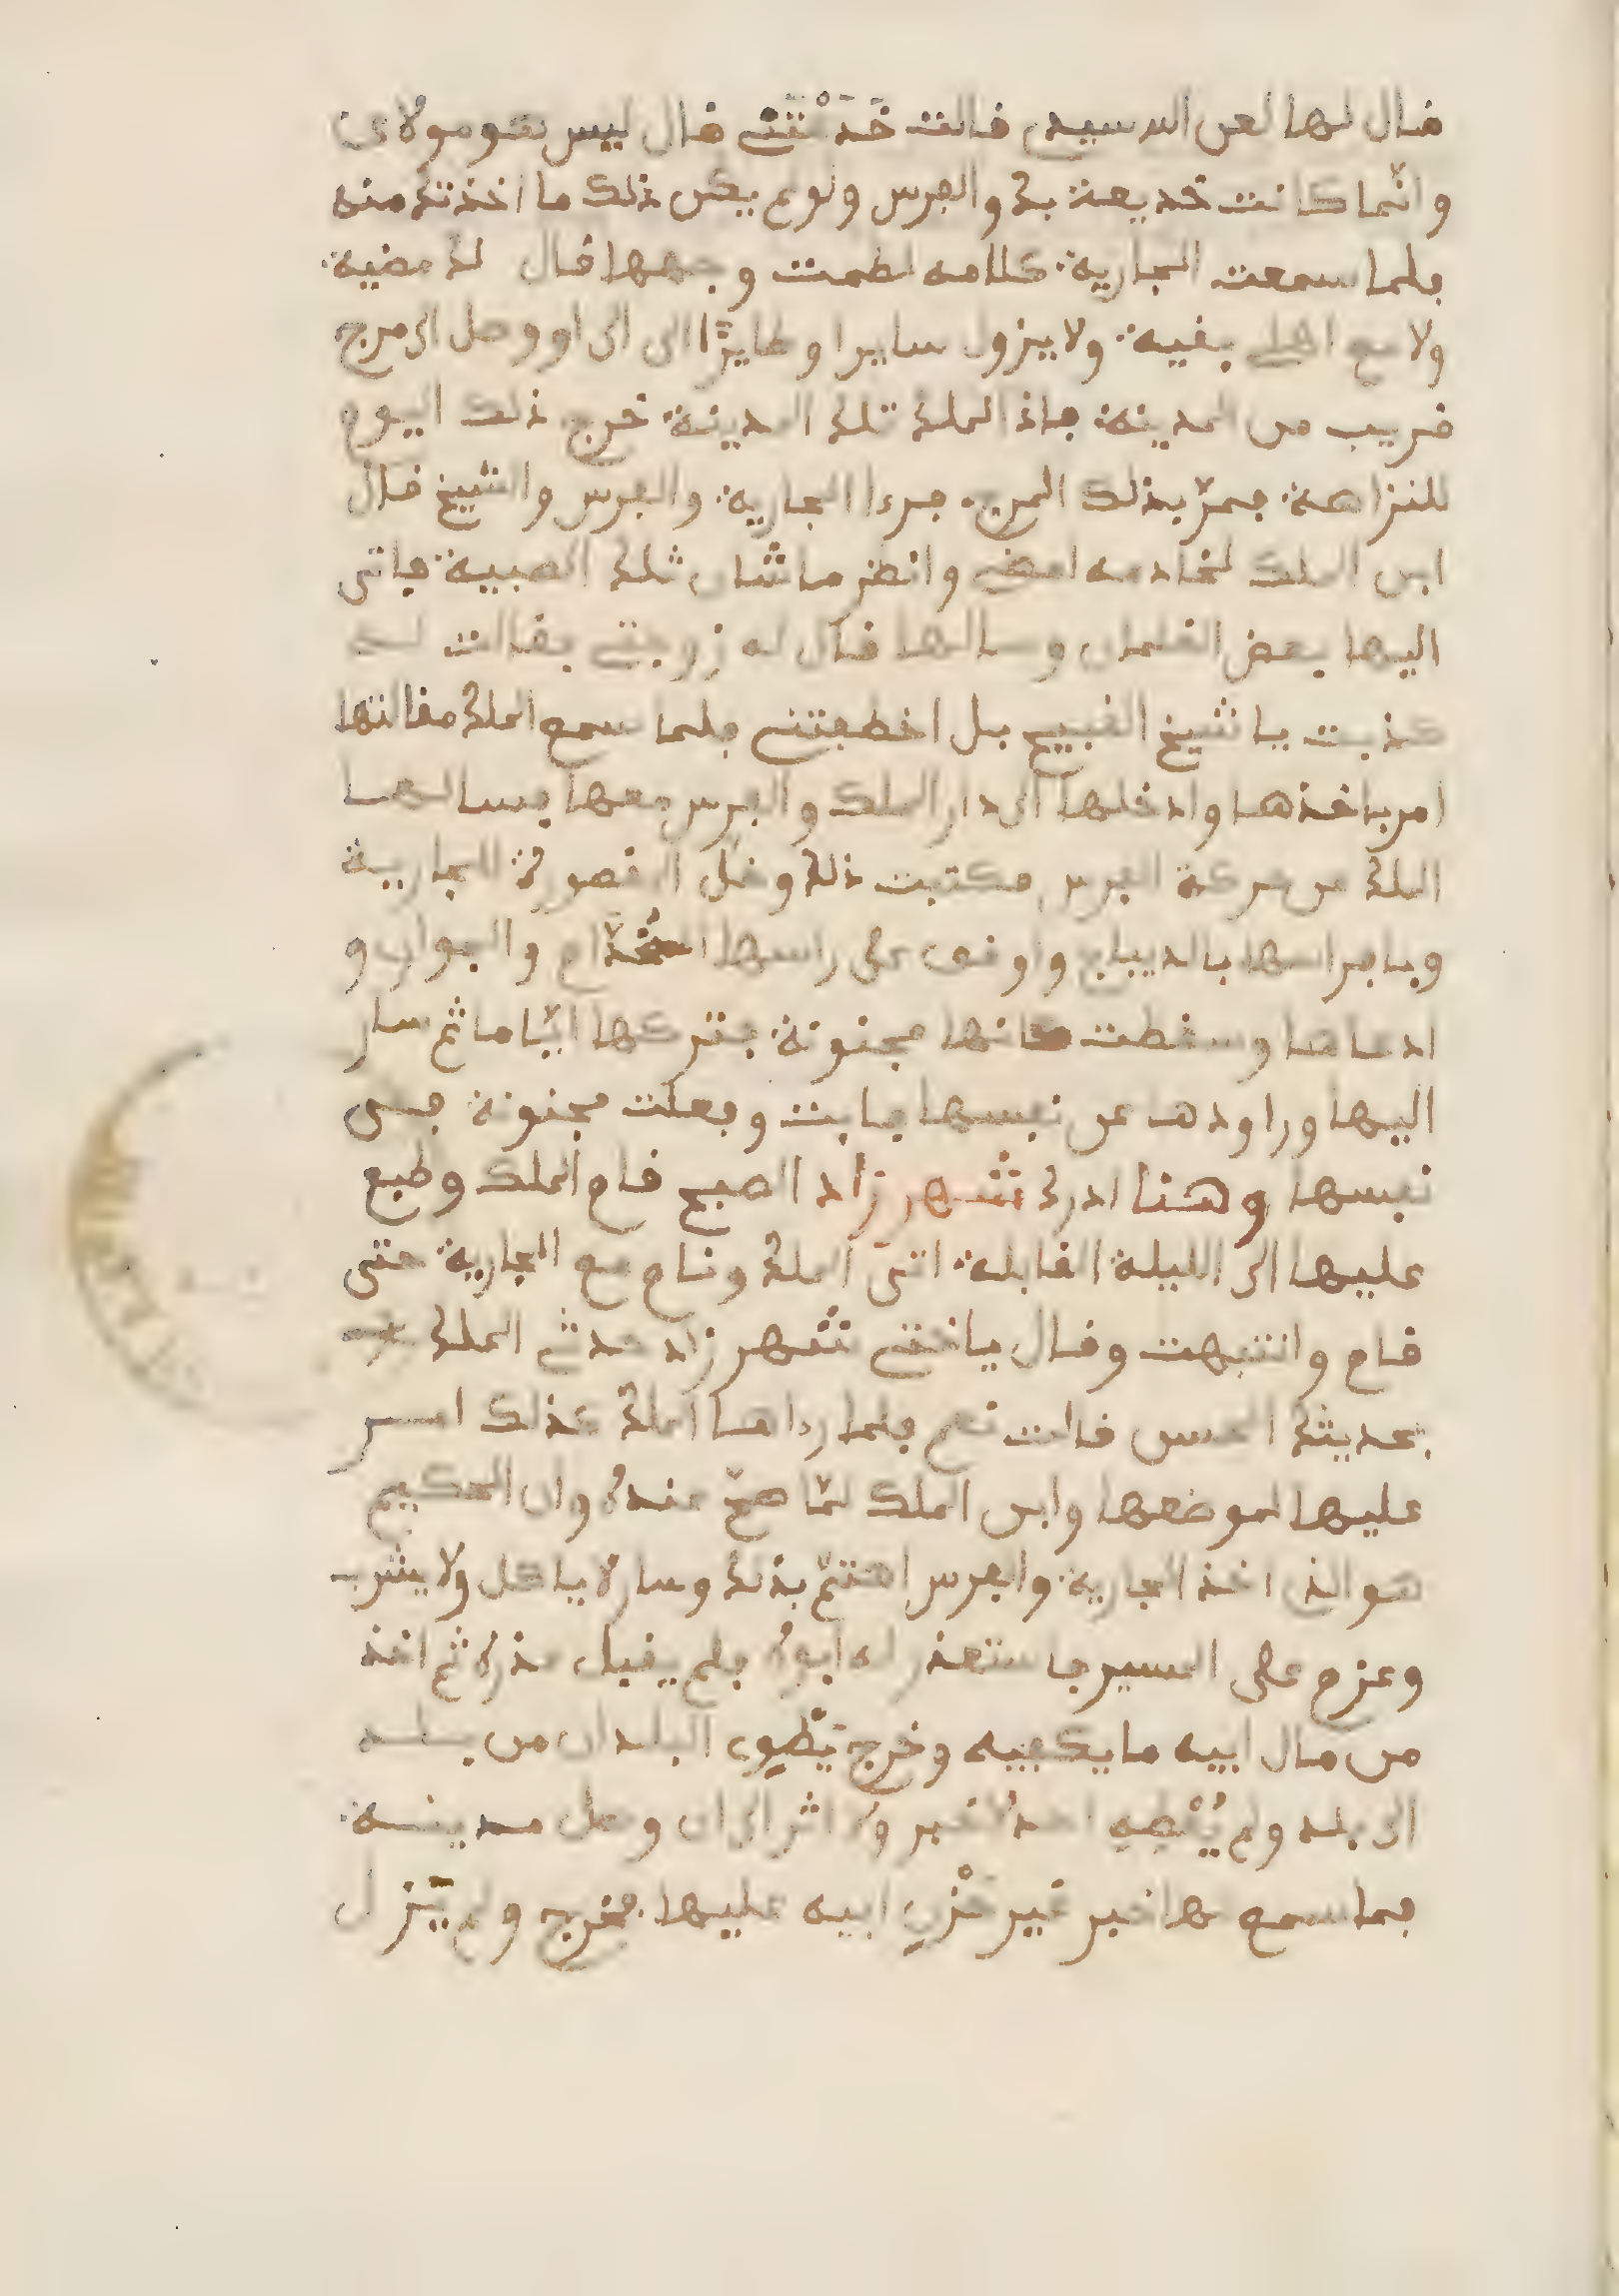 فال لها لعن الله سيدى فالت خَدَعْتَنى فال ليس هو مولاى
وانّما كانت خديعة بك والفرس ولولم يكن ذلك ما اخذتك منه
فلما سمعت الجارية كلامه لطمت وجهها فال لا مضية
ولا مع اهلى بفية ولا يزول سايرا وطايرًا الى ان او وصل الى مرج
فريب من المدينة فاذ الملك تلك المدينة خرج ذلك اليوم
للنزاهة فمرّ بذلك المرج فرءا الجارية والفرس والشيخ فال
ابن الملك لخادمه امضى وانظر ما شان تلك الصبية فاتى
اليها بعض الغلمان وسالها فال له زوجتى ففالت له
كذبت يا شيخ الفبيح بل اخطفتنى فلما سمع الملك مفالتها
امر باخذها وادخلها الى دار الملك والفرس معها فسالها
الملك عن حركة الفرس فكتبت ذلك وفل الفصورة الجارية
وبافراسها بالديباج واوفى على راسها الخُدّام والجوار و
ادعاها وسفطت كانها مجنونة فتركها ايّاما ثم سار
اليها وراودها عن نفسها فابت وفعلت مجنونة فى
نفسها وهنا ادرك شهرزاد الصبح فام الملك وطبع
عليها الى الليلة الفابلة اتى الملك ونام مع الجارية حتى
فام وانتبهت وفال يا اختى شهرزاد حدثى الملك
بحديثك الحسن فالت نعم فلما رءاها الملك كذلك امر
عليها لموضعها وابن الملك لمّا صحّ عنده وان الحكيم
هو الذى اخذ الجارية والفرس اهتمّ بذلك وسار لا ياكل ولا يشرب
وعزم على المسير فاستعذر له ابوه فلم يفبل عذره ثم اخذ
من مال ابيه ما يكفيه وخرج يَطْوِى البلدان من بلد
الى بلد ولم يُعْطِهِ احد لا خبر ولا اثر الى ان وصل مدينة
فما سمع لها خبر غير حُزْنِ ابيه عليها فخرج ولم يَزل